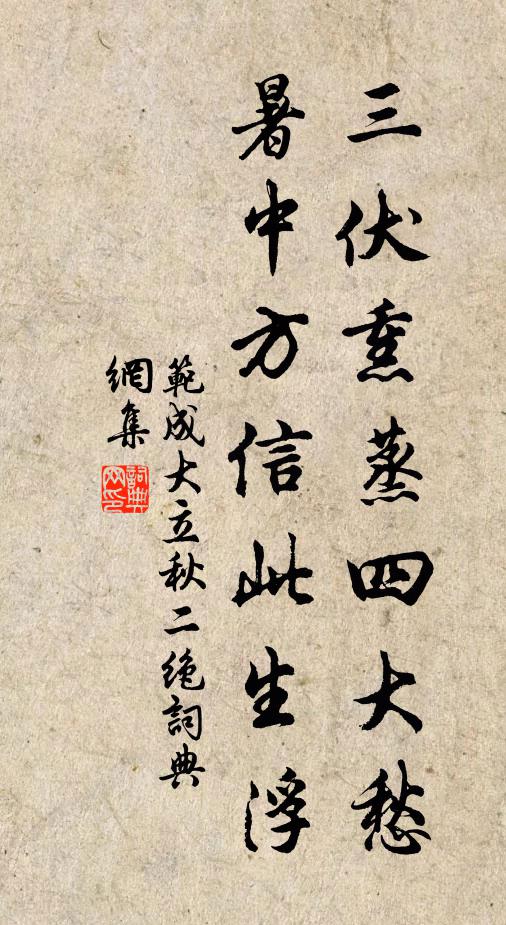 三伏熏蒸四大愁
暑中方信此生浮
範成大立秋二绝詞典
網集
詞典网印